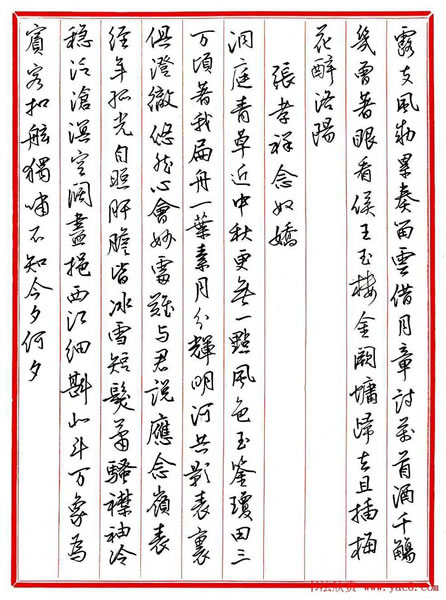 露支風勅累奏留雲借月章詩萬首酒千觴
幾曾著眼看侯王玉樓金闕慵歸去且插梅
花醉洛陽
張孝祥念奴嬌
洞庭青草近中秋更無一點風色玉鑒瓊田三
万頃著我扁舟一葉素月分輝明河共影表裏
俱澄徹悠然心會妙處難与君說應念嶺表
經年孤光自照肝膽皆冰雪短髮蕭騷襟袖冷
穩泛滄溟空闊盡挹西江細斟北斗万象為
賓客扣舷獨嘯不知今夕何夕